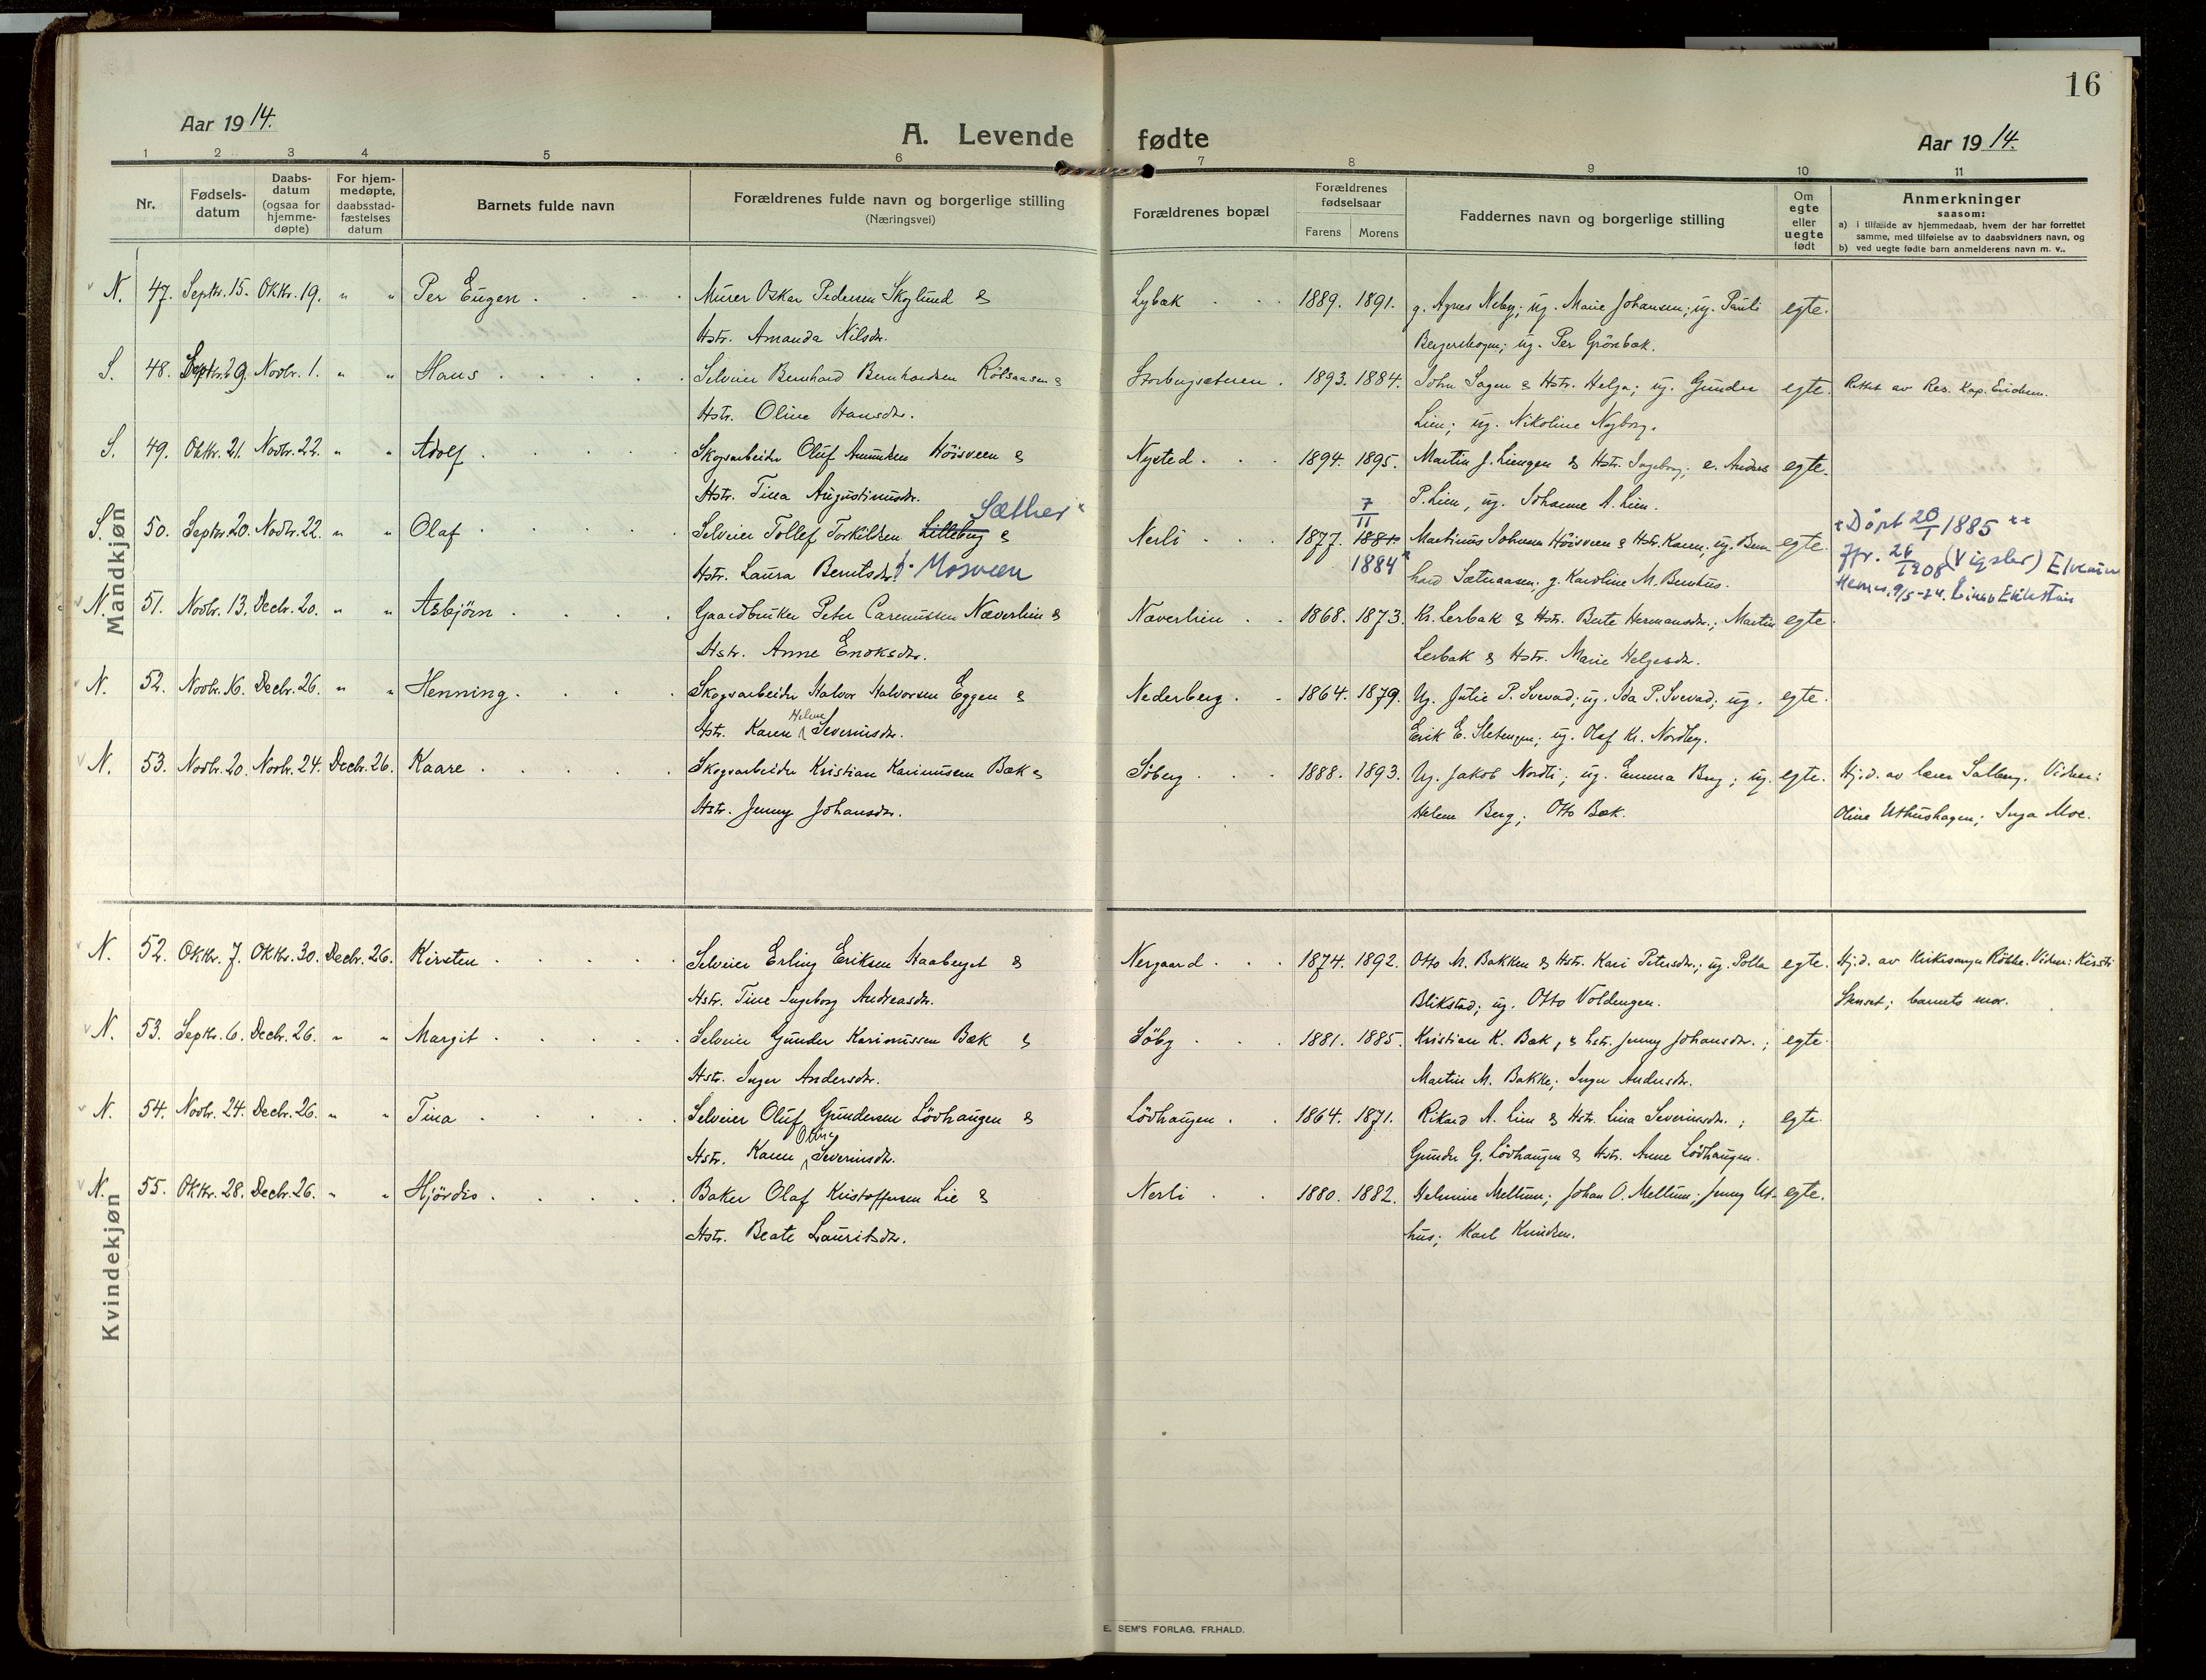 16
Aar 1914.
A. Levende fødte
Aar 1914.
1 2 3 4 5 6 7 8 9 10 11
Nr.
Fødsels-
datum
Daabs-
datum
(ogsaa for
hjemme-
døpte)
For hjem-
medøpte,
daabsstad-
fæstelses
datum
Barnets fulde navn
Forældrenes fulde navn og borgerlige stilling
(Næringsvei)
Forældrenes bopæl
Forældrenes
fødselsaar
Farens Morens
Faddernes navn og borgerlige stilling
Om
egte
eller
uegte
født
Anmerkninger
saasom:
a) i tilfælde av hjemmedaab, hvem der har forrettet
samme, med tilføielse av to daabsvidners navn, og
b) ved uegte fødte barn anmelderens navn m. v..
Mandkjøn
N. 47. Septr. 15. Oktr. 19. " " Per Eugen Murer Oskar Pedersen Skoglund & Lybæk 1889. 1891. g. Agnes Neby; ug. Marie Johansen; ug. Pauli egte.
Hstr. Amanda Nilsdr. Bergerskogen; ug. Per Grönbæk.
S. 48. Septr. 29. Novbr. 1. " " Hans Selveier Bernhard Bernhardsen Rölsaasen & Storbergsæteren 1893. 1884. John Sagen & Hstr. Helga; ug. Gunder egte. Rettet av Res. Kap.
Hstr. Oline Hansdr. Lien; ug. Nikoline Nyborg.
S. 49. Oktr. 21. Novbr. 22. " " Adolf Skogsarbeider Oluf Amundsen Höisveen & Nysted 1894. 1895. Martin J. Liengen & Hstr. Ingeborg; e. Anders egte.
Hstr. Tina Augustinusdr. P. Lien, ug. Johanne A. Lien.
Sæther x 7/11
S. 50. Septr. 20. Novbr. 22. " " Olaf Selveier Tollef Torkildsen Lilleberg & Nerli 1877. 1881 Martinus Johnsen Höisveen & Hstr. Karen; ug. Bern- egte. x Döpt 20/1 1885 xx
Hstr. Laura Berntsdr. f. Mosveen 1884 x hard Sætraasen; g. Karoline M. Berthus. Jfr. 26/1 1908 (Vigsler) Elverum
N. 51. Novbr. 13. Decbr. 20. " " Asbjörn Gaardbruker Peter Carenussen Næverlien & Næverlien 1868. 1873. Kr. Lerbak & Hstr. Berte Hermansdr.; Martin egte.
Hstr. Anne Enoksdr. Lerbak & Hstr. Marie Helgesdr.
N. 52. Novbr. 16. Decbr. 26. " " Henning Skogsarbeider Halvor Halvorsen Eggen & Nederberg 1864. 1879. Ug. Julie P. Svevad; ug. Ida P. Svevad; ug. egte.
Hstr. Karen Helene Severinsdr. Erik E. Sletengen; ug. Olaf Kr. Nordby.
N. 53. Novbr. 20. Novbr. 24. Decbr. 26. Kaare Skogsarbeider Kristian Karinussen Bæk & Söberg 1888. 1893. Ug. Jakob Nordli; ug. Emma Berg; ug. egte. Hj.d. av lærer Salberg. Vidner:
Hstr. Jenny Johansdr. Helene Berg; Otto Bæk. Oline Uthushagen; Inga Moe.
Kvindekjøn
N. 52. Oktr. 7. Oktr. 30. Decbr. 26. Kirsten Selveier Erling Eriksen Haaberget & Nergaard 1874. 1892. Otto M. Bakken & Hstr. Kari Petersdr.; ug. Polla egte. Hj.d. av Kirkesanger Rökke. Vidner: Kirsti
Hstr. Tine Ingeborg Andreasdr. Blikstad; ug. Otto Voldengen. Stenset; barnets mor.
N. 53. Septr. 6. Decbr. 26. " " Margit Selveier Gunder Karinussen Bæk & Söby 1881. 1885. Kristian K. Bæk, & hstr. Jenny Johansdr.; egte.
Hstr. Inger Andersdr. Martin M. Bakke; Inger Andersdr.
N. 54. Novbr. 24. Decbr. 26. " " Tina Selveier Oluf Gundersen Lövhaugen & Lövhaugen 1864. 1871. Rikard A. Lien & Hstr. Lina Severinsdr.; egte.
Hstr. Karen Oline Severinsdr. Gunder G. Lövhaugen & Hstr. Anne Lövhaugen.
N. 55. Oktr. 28. Decbr. 26. " " Hjördis Baker Olaf Kristoffersen Lie & Nerli 1880. 1882. Helmine Mellum; Johan O. Mellum; Jenny Ut- egte.
Hstr. Beate Lauritsdr. hus; Karl Knudsen.
E. SEM'S FORLAG, FR.HALD.